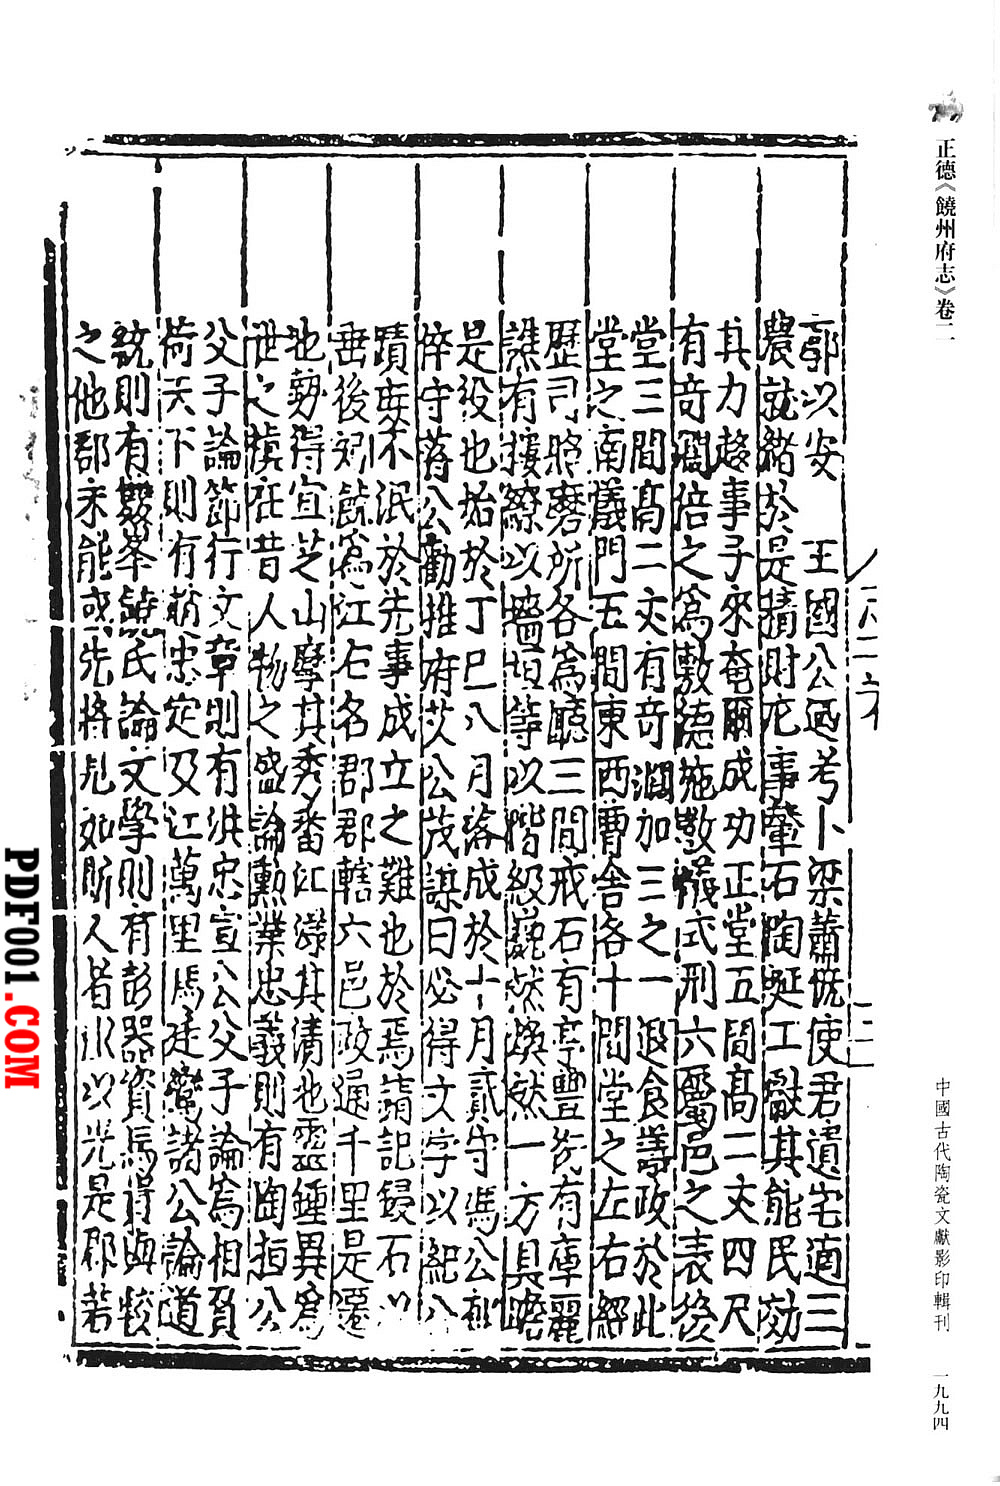 正德《饒州府志》卷二
郭以安　王國公迺考卜梁蕭侯使君遺宅適三
農就緒於是積財庀事輦石陶埏工獻其能民効
其力趍事子來奄爾成功正堂五間高二丈四尺
有奇濶倍之爲敷德施敎儀式刑六屬邑之表後
堂三間高二丈有奇濶加三之一退食籌政於此
堂之南儀門五間東西曹舍各十間堂之左右經
歷司照磨所各爲廳三間戒石有亭豐先有庫麗
譙有樓繚以墻垣等以階級巍然煥然一方具瞻
是役也始於丁巳八月落成於十月貳守馮公
倅守蔣公勸推府艾公茂謀曰必得文字以紀
蹟毋不泯於先事成立之難也於焉請記鋟石以
垂後 爲江右名郡郡轄六邑政通千里是還
也勢得宜芝山孕其秀番江漾其清也靈鍾異爲
世之楨在昔人物之盛論勲業忠義則有陶桓公
父子論節行文章則有洪忠宣公父子論爲相負
荷天下則有 忠定及江萬里馬廷鸞諸公論道
統則有雙峯饒氏論文學則有彭器資馬 與較
之他郡未能或先將見如斯人者出以光是郡若
中國古代陶瓷文獻影印輯刊
一九九四
PDF001.COM